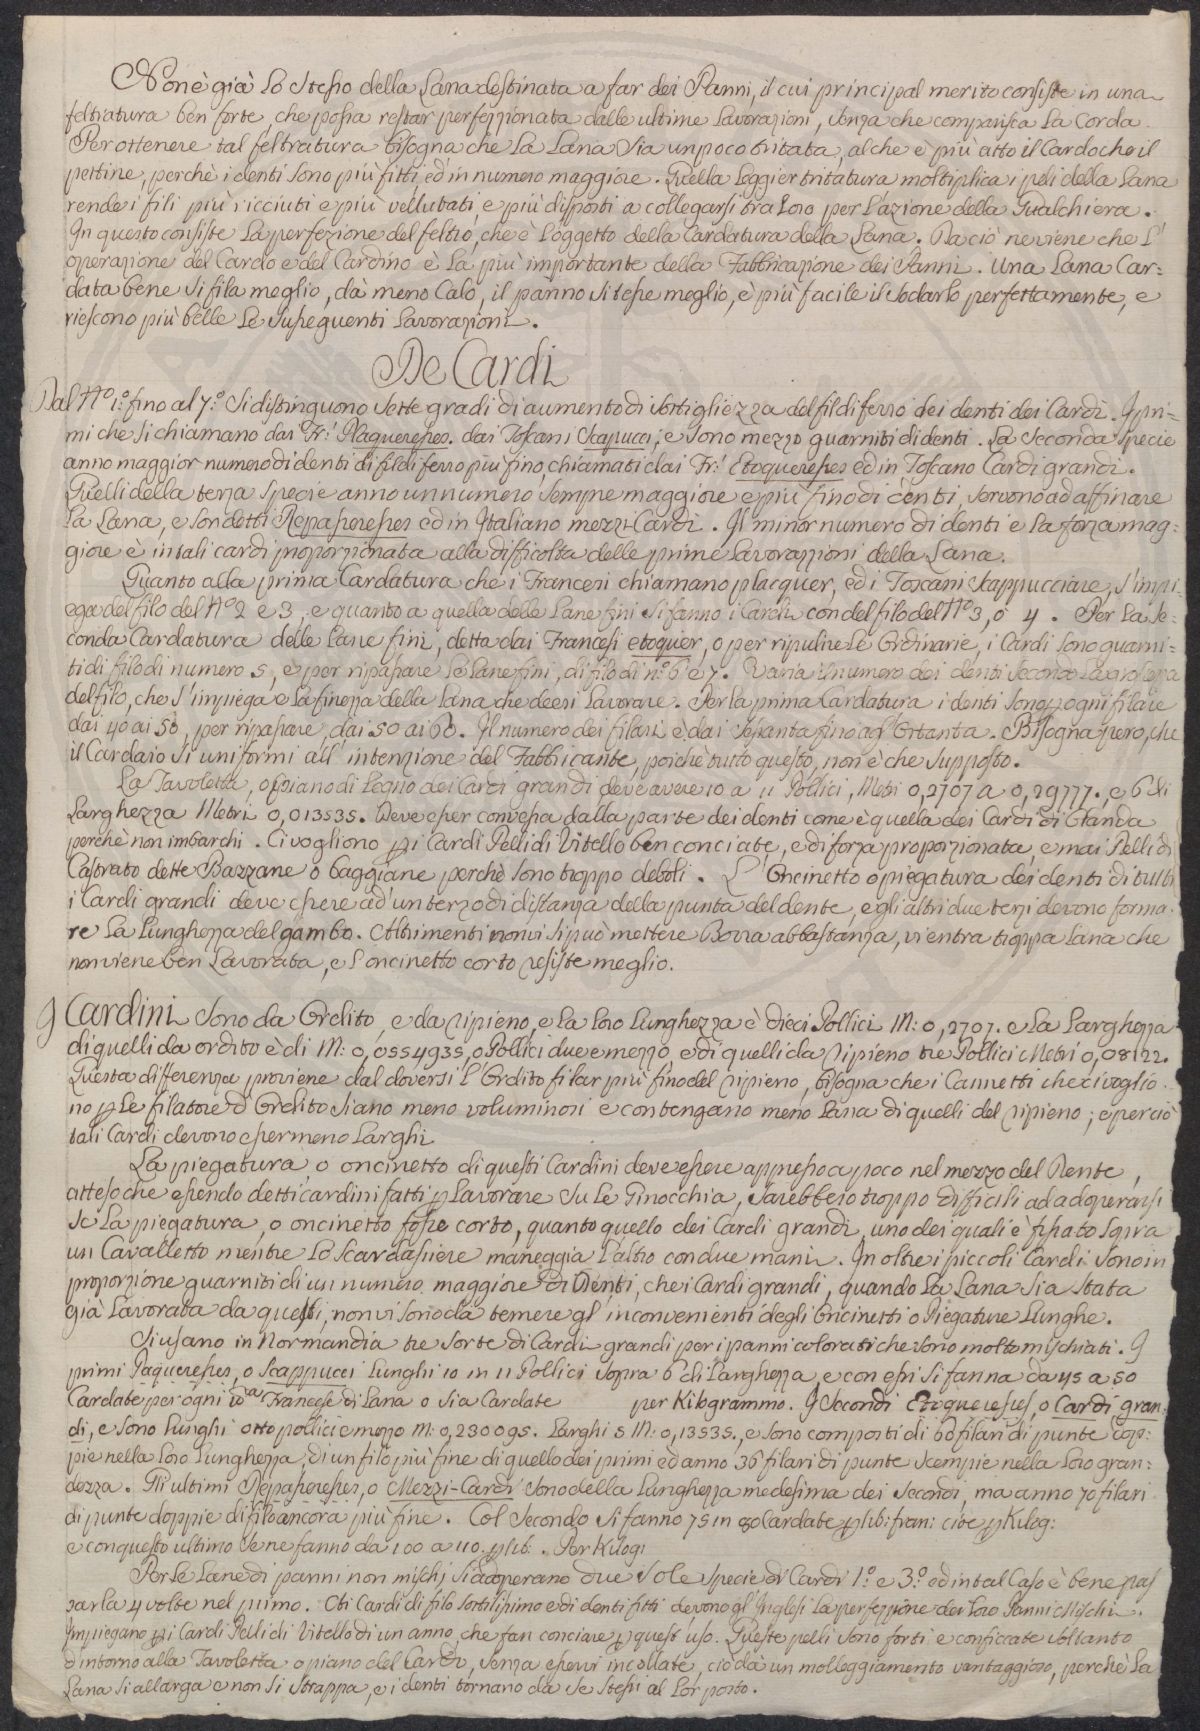 Non è già lo stesso della Lana destinata a far dei Panni, il cui principal merito consiste in una
feltratura ben forte, che possa restar perfezzionata dalle ultime Lavorazioni, senza che comparisca la Corda.
Per ottenere tal feltratura bisogna che la Lana sia un poco tritata, al che è più atto il Cardo che il
pettine, perchè i denti sono più fitti, ed in numero maggiore. Quella leggier tritatura moltiplica i peli della Lana
rende i fili più ricciuti e più vellutati, e più disposti a collegarsi tra loro per l'azione della Gualchiera.
In questo consiste la perfezione del feltro, che è l'oggetto della Cardatura della Lana. Da ciò ne viene che l'
operazione del Cardo e del Cardino è la più importante della Fabbricazione dei Panni. Una Lana Car=
data bene si fila meglio, dà meno Calo, il panno si tesse meglio, è più facile il sodarlo perfettamente, e
riescono più belle le susseguenti Lavorazioni.
De Cardi
Dal Nº 1.º fino al 7.º si distinguono sette gradi di aumento di sottigliezza del fil di ferro dei denti dei Cardi. I pri=
mi che si chiamano dai Fr: Plaqueresses. dai Toscani Scapucci, e sono mezzo guarniti di denti. La seconda specie
anno maggior numero di denti di fil di ferro più fino, chiamati dai Fr: Etoqueresses ed in Toscano Cardi grandi.
Quelli della terza specie anno un numero sempre maggiore e più fino di denti, servono ad affinare
la Lana, e son detti Repasseresses ed in Italiano mezzi-Cardi. Il minor numero di denti e la forza mag=
giore è in tali cardi proporzionata alla difficolta delle prime Lavorazzioni della Lana.
Quanto alla prima Cardatura che i Francesi chiamano placquer, ed i Toscani Scappucciare, s'impi=
ega del filo del Nº 2 e 3, e quanto a quella delle Lane fini si fanno i Cardi con del filo del Nº 3, ó 4. Per la Se=
conda Cardatura delle Lane fini, detta dai Francesi etoquer, o per ripulire le Ordinarie, i Cardi sono guarni=
ti di filo di numero 5, e per ripassare le Lane fini, di filo di n.º 6 e 7. Varia il numero dei denti secondo la grossezza
del filo, che s'impiega e la finezza della Lana che deesi Lavorare. Per la prima Cardatura i denti sono p ogni filare
dai 40 ai 50, per ripassare, dai 50 ai 60. Il numero dei filari è dai sessanta fino agl'Ottanta. Bisogna pero, che
il Cardaio si uniformi all'intenzione del Fabbricante, poichè tutto questo, non è che supposto.
La Tavoletta, o piano di Legno dei Cardi grandi deve avere 10 a 11 Pollici, Metri 0,2707 a 0,29777., e 6 di
Larghezza Metri 0,013535. Deve esser convessa dalla parte dei denti come è quella dei Cardi di Olanda
perchè non imbarchi. Ci vogliono p i Cardi Pelli di Vitello ben conciate, e di forza proporzionata, e mai Pelli di
Castrato dette Bazzane o baggiane perchè sono troppo deboli. L'Oncinetto o piegatura dei denti di tutti
i Cardi grandi deve essere ad'un terzo di distanza della punta del dente, e gli altri due terzi devono forma=
re la Lunghezza del gambo. Altrimenti non vi si può mettere Borra abbastanza, vi entra troppa Lana che
non viene ben Lavorata, e l'oncinetto corto resiste meglio.
I Cardini sono da Ordito, e da ripieno, e la loro Lunghezza è dieci Pollici M: 0,2707. e la Larghezza
di quelli da ordito è di M: 0,0554935, o Pollici due e mezzo, e di quelli da ripieno tre Pollici Metri 0,08122.
Questa differenza proviene dal doversi l'Ordito filar più fino del ripieno, bisogna che i Cannetti che ci voglio=
no p le filatore d'Ordito siano meno voluminosi e contengano meno Lana di quelli del ripieno; e perciò
tali Cardi devono esser meno Larghi
La piegatura, o oncinetto di questi Cardini deve essere appresso a poco nel mezzo del Dente,
atteso che essendo detti cardini fatti p Lavorare su le Ginocchia, sarebbero troppo difficili ad adoperarsi
se la piegatura, o oncinetto fosse corto, quanto quello dei Cardi grandi, uno dei quali è fissato sopra
un Cavalletto mentre lo Scardassiere maneggia l'altro con due mani. In oltre i piccoli Cardi sono in
proporzione guarniti di un numero maggiore di Denti, che i Cardi grandi, quando la Lana sia stata
già Lavorata da questi, non vi sono da temere gl'inconvenienti degli Oncinetti o Piegature Lunghe.
Si usano in Normandia tre sorte di Cardi grandi per i panni colorati che sono molto mischiati. I
primi Paqueresses, o Scappucci Lunghi 10 in 11 Pollici sopra 6 di Larghezza, e con essi si fanna da 45 a 50
Cardate per ogni Francese di Lana o sia Cardate per Kilogrammo. I Secondi Etoqueresses, o Cardi gran=
di, e sono Lunghi otto pollici e mezzo M: 0,230095. Larghi 5 M: 0,13535., e sono composti di 60 filari di punte dop:
pie nella loro Lunghezza, di un filo più fine di quello dei primi ed anno 36 filari di punte scempie nella loro gran=
dezza. Gli ultimi Repasseresses, o Mezzi-Cardi sono della Lunghezza medesima dei secondi, ma anno 70 filari
di punte doppie di filo ancora più fine. Col Secondo si fanno 75 in 80 Cardate p lib: fran: cioe p Kilog:
e con questo ultimo se ne fanno da 100 a 110. p lib:. Per Kilog:
Per le Lane di panni non mischi si adoperano due sole specie di Cardi 1.º e 3.º ed in tal Caso è bene pas
sarla 4 volte nel primo. Ai Cardi di filo sottilissimo e di denti fitti devono gl'Inglesi la perfezzione dei loro Panni Mischi.
Impiegano p i Cardi Pelli di Vitello di un anno, che fan conciare p quest'uso. Queste pelli sono forti e conficcate soltanto
d'intorno alla Tavoletta o piano del Cardo, senza esservi incollate, ciò dà un molleggiamento vantaggioso, perchè la
Lana si allarga e non si strappa, e i denti tornano da se stessi al lor posto.